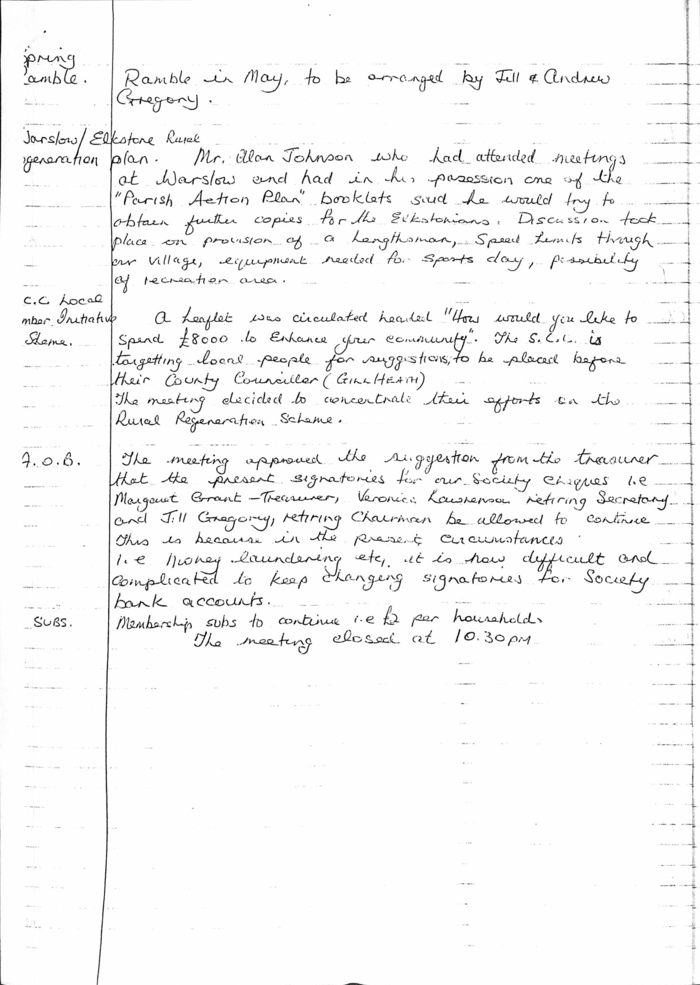 pring
amble.
Ramble in May, to be arranged by Jill & Andrew
Gregory.
arslow/Elkstone Rural
generation plan. Mr. Alan Johnson who had attended meetings
at Warslow and had in his posession one of the
"Parish Action Plan" booklets said he would try to
obtain further copies for the Elkstonians. Discussion took
place on provision of a Lengthsman, Speed Limits through
our village, equipment needed for sports day, possibility
of recreation area.
C.C Local
mber Initiative
Sheme.
A leaflet was circulated headed "How would you like to
Spend £8000 to Enhance your community". The S.C.C. is
targetting local people for suggestions, to be placed before
their County Councillor (GILL HEATH)
The meeting decided to concentrate their efforts on the
Rural Regeneration Scheme.
A.O.B.
The meeting approved the suggestion from the treasurer
that the present signatories for our Society cheques i.e
Margaret Grant - Treasurer, Veronica Lawrenson retiring Secretary
and Jill Gregory, retiring Chairman be allowed to continue
This is because in the present circumstances
i.e money laundering etc, it is now difficult and
complicated to keep changing signatories for Society
bank accounts.
SUBS.
Membership subs to continue i.e £2 per household.
The meeting closed at 10.30pm